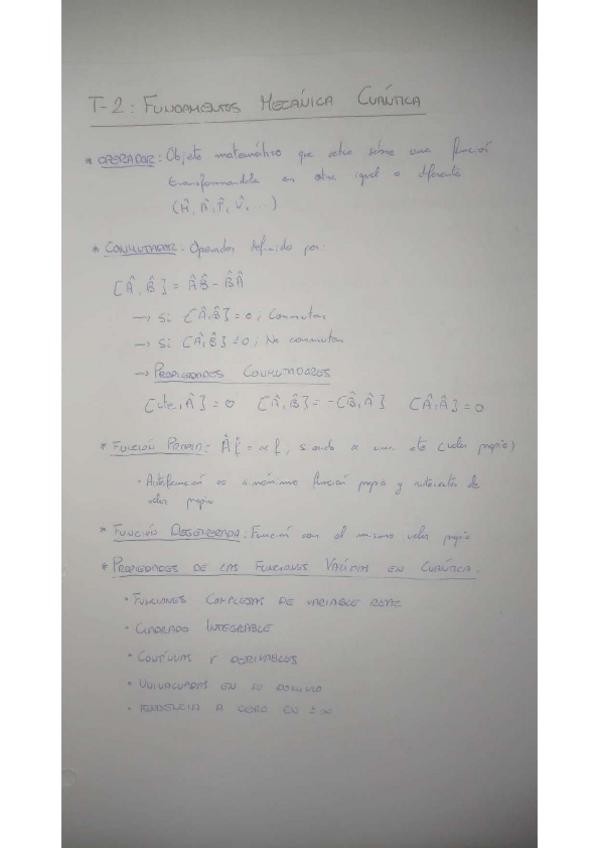 T-2: FUNDAMENTOS MECÁNICA CUÁNTICA
* OPERADOR: Objeto matemático que actúa sobre una función
transformandola en otra igual o diferente
(Ĥ, , T̂, V̂, ...)
* CONMUTADOR: Operador definido por:
[Â, B̂] = ÂB̂ - B̂Â
→ Si [Â, B̂] = 0; Conmutan
→ Si [Â, B̂] ≠ 0; No conmutan
→ PROPIEDADES CONMUTADORES
[cte, Â] = 0 [Â, B̂] = -[B̂, Â] [Â, Â] = 0
* FUNCIÓN PROPIA: Âf = αf, siendo α una cte (valor propio)
· Autofunción es sinónimo función propia y autovalor de
valor propio
* FUNCIÓN DEGENERADA: Función con el mismo valor propio
* PROPIEDADES DE LAS FUNCIONES VÁLIDAS EN CUÁNTICA:
· FUNCIONES COMPLEJAS DE VARIABLE REAL
· CUADRADO INTEGRABLE
· CONTÍNUAS Y DERIVABLES
· UNIVALUADAS EN SU DOMINIO
· TENDENCIA A CERO EN ±∞